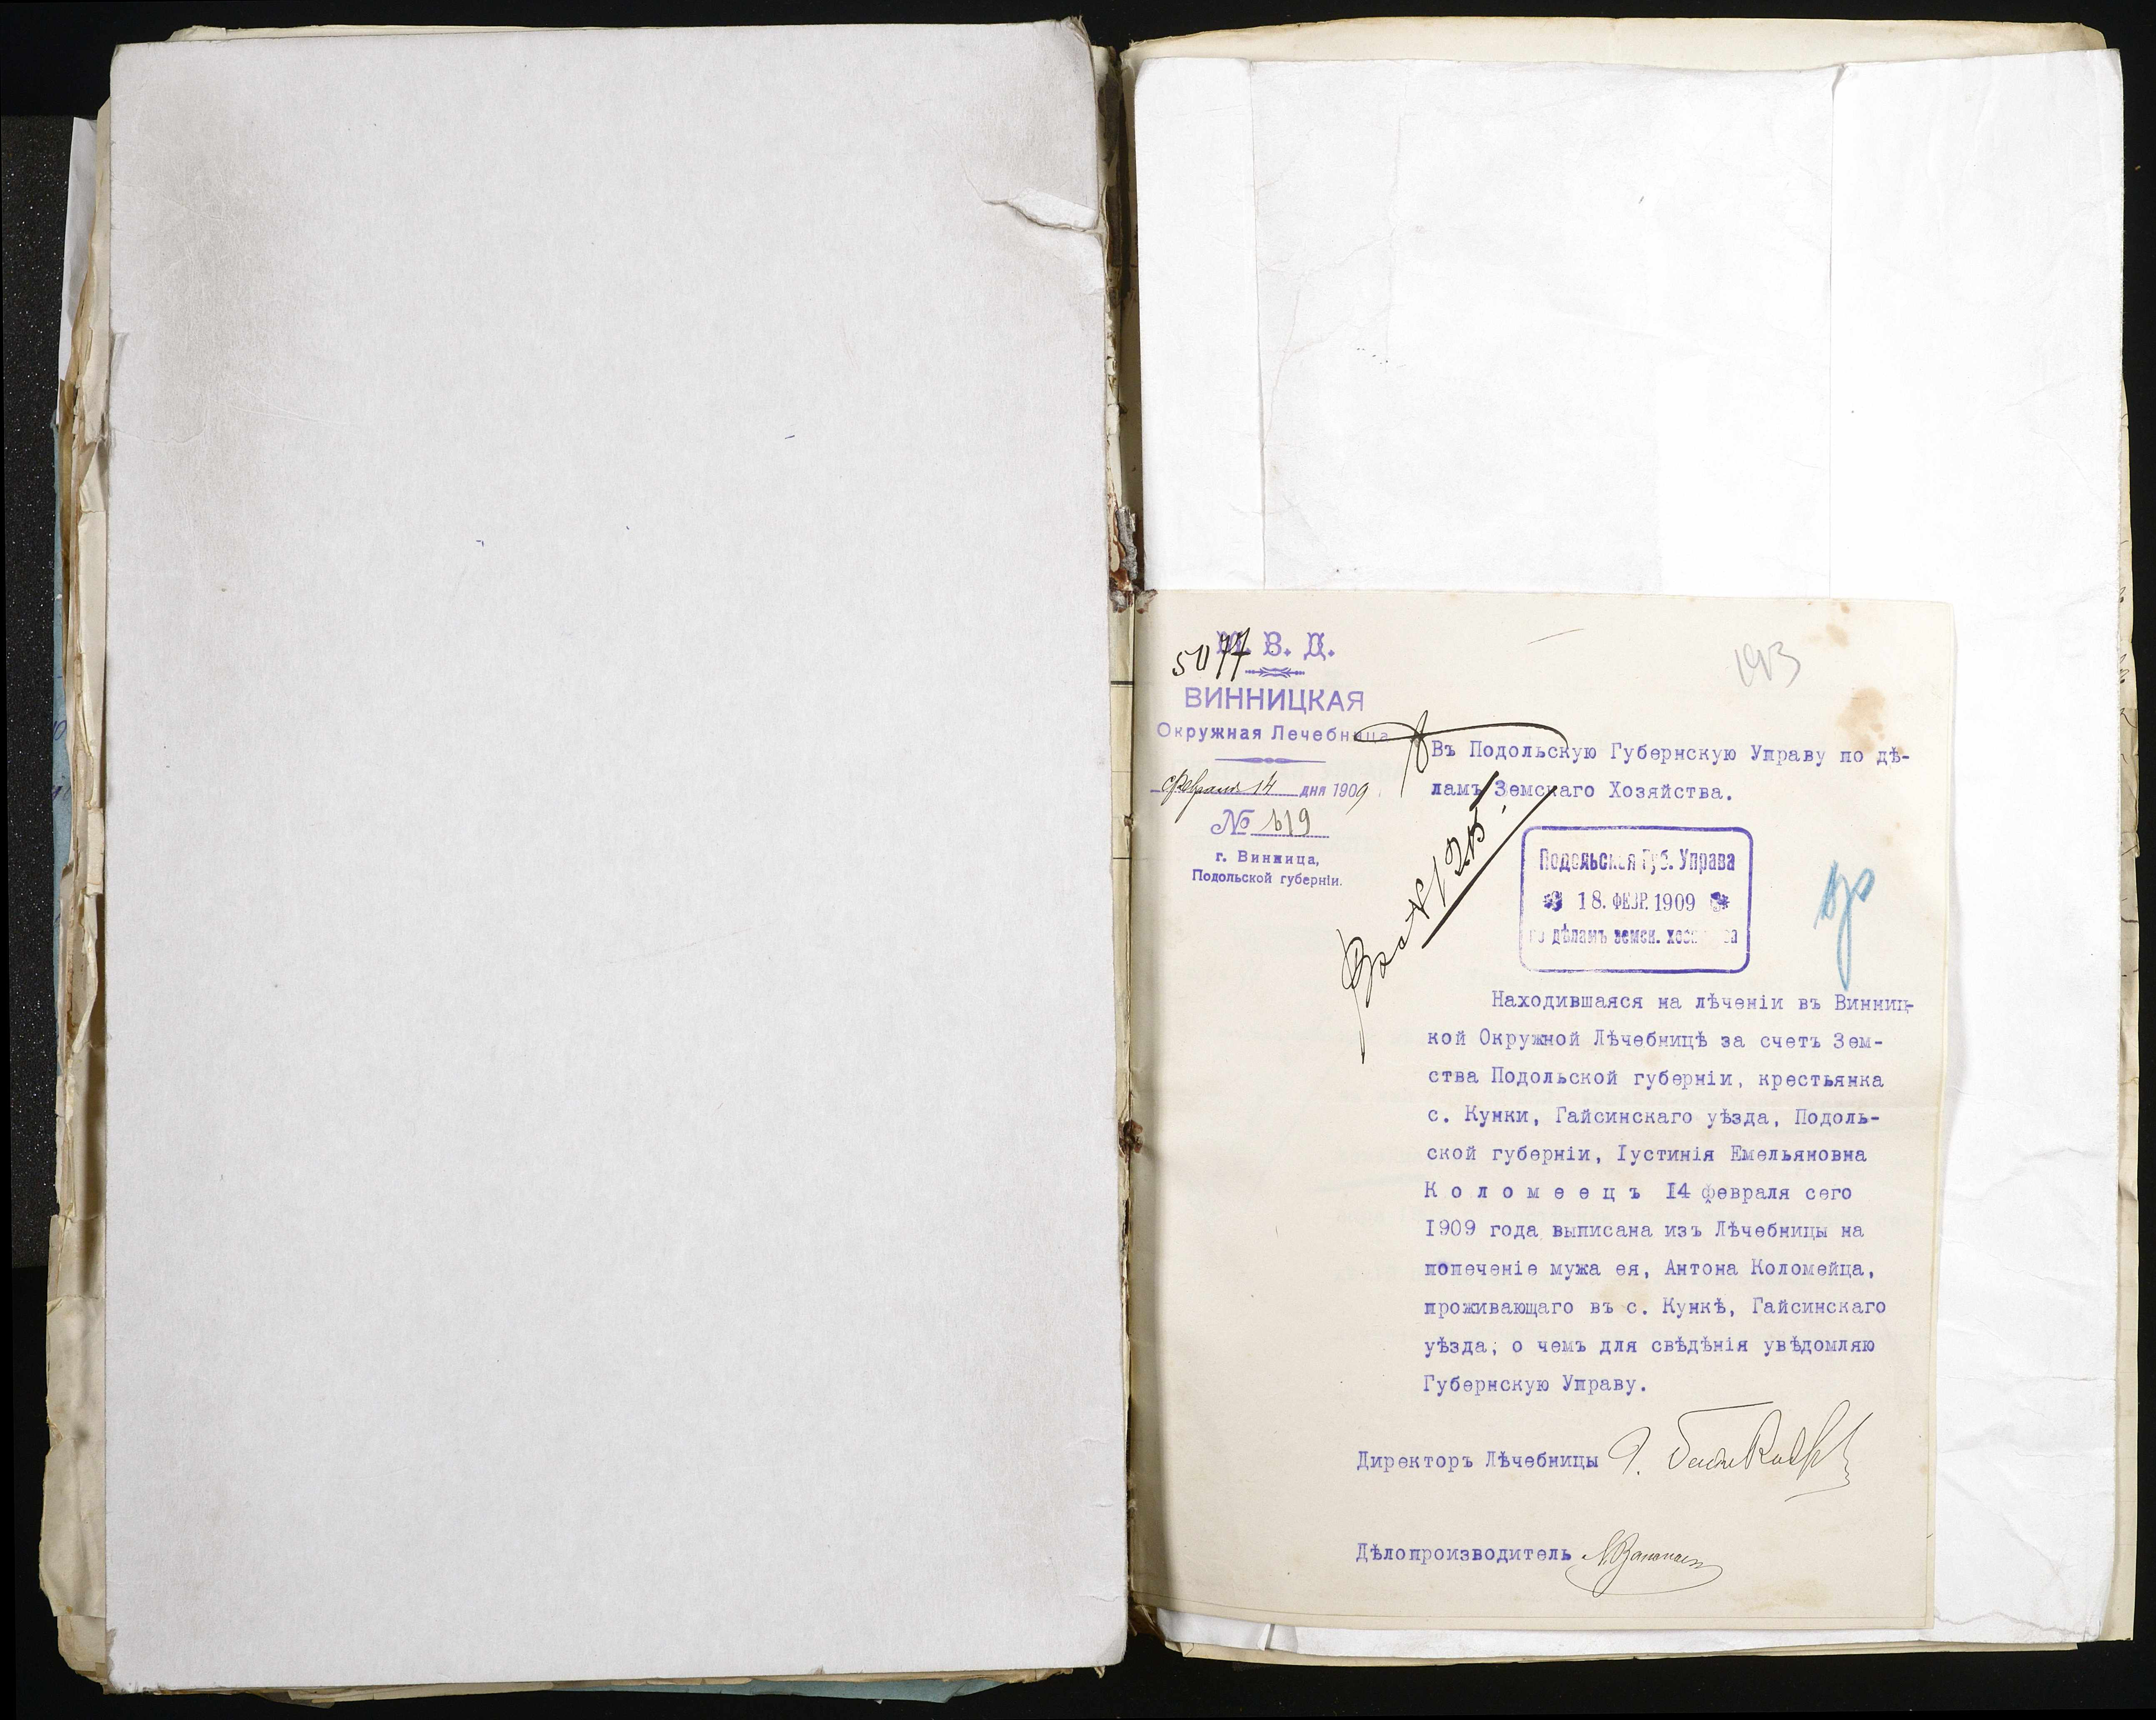 М. В. Д.
5077
ВИННИЦКАЯ
Окружная Лечебница
Февраля 14 дня 1909
№ 619
г. Винница,
Подольской губерніи.
193
Въ Подольскую Губернскую Управу по дѣ-
ламъ Земскаго Хозяйства.
№ 1215.
Подольская Губ. Управа
18. ФЕВР. 1909
по дѣламъ земск. хозяйства
Находившаяся на лѣченіи въ Винниц-
кой Окружной Лѣчебницѣ за счетъ Зем-
ства Подольской губерніи, крестьянка
с. Кунки, Гайсинскаго уѣзда, Подоль-
ской губерніи, Іустинія Емельяновна
К о л о м е е ц ъ 14 февраля сего
1909 года выписана изъ Лѣчебницы на
попеченіе мужа ея, Антона Коломейца,
проживающаго въ с. Кункѣ, Гайсинскаго
уѣзда; о чемъ для свѣдѣнія увѣдомляю
Губернскую Управу.
Директоръ Лѣчебницы
Дѣлопроизводитель